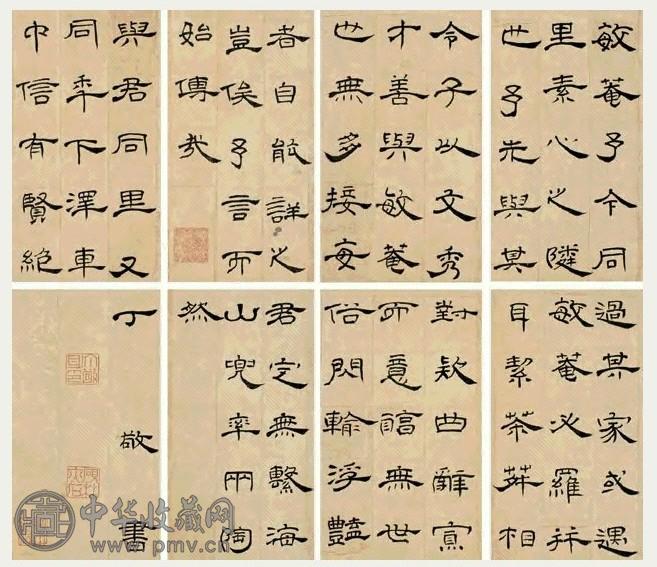 敏菴予今同
里素心之隣
也予先與其
令子以文秀
才善與敏菴
也無多接每
者自能詳之
豈俟予言而
始傳哉
與君同里又
同年下澤車
中信有賢絶
過其家或遇
敏菴必羅并
耳絜茶荈相
對欵曲辭寡
而意無世
俗閃輸浮豔
君定無繫海
山兜率兩陶
然
丁敬書
中华收藏网
www.pmv.cn